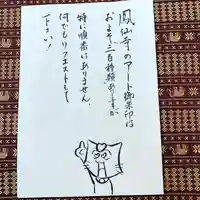 鳳仙寺のアート御朱印は
およそ、三百種類ありますが
特に順番はありません。
何でもリクエストして
下さい！